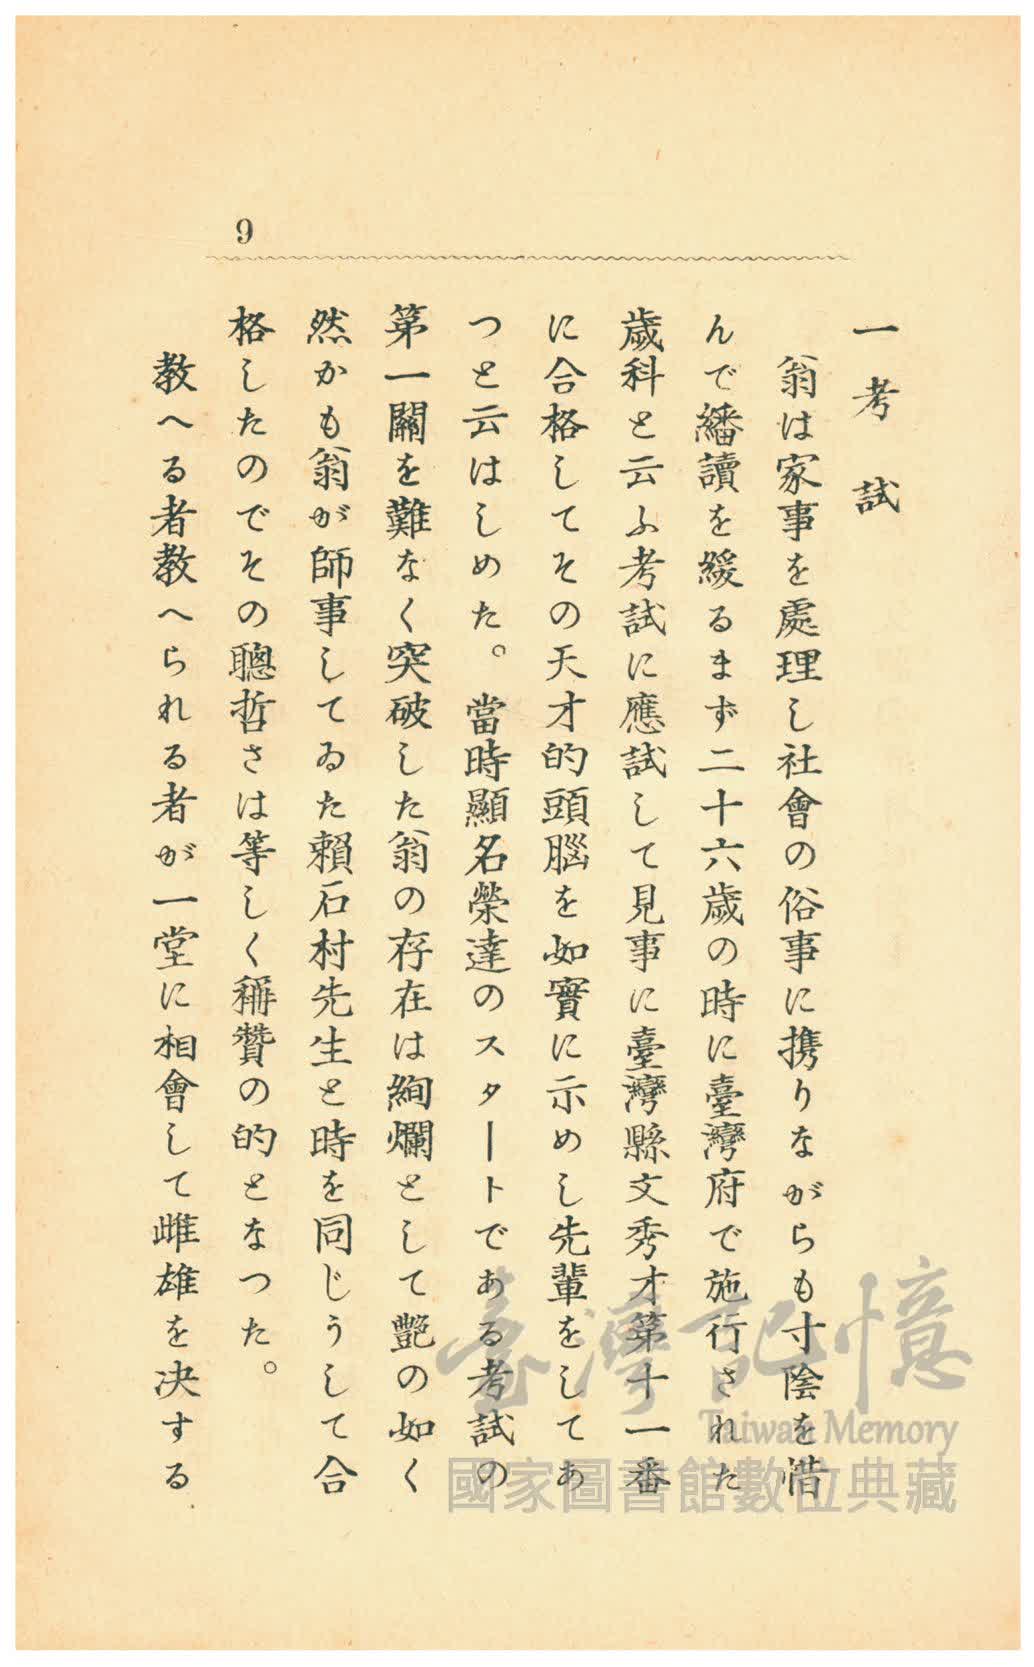 9
一考試
翁は家事を處理し社會の俗事に携りながらも寸陰を惜
んで繙讀を緩るまず二十六歲の時に臺灣府で施行された
歲科と云ふ考試に應試して見事に臺灣縣文秀才第十一番
に合格してその天才的頭腦を如實に示めし先輩をしてあ
つと云はしめた。當時顯名榮達のスタートである考試の
第一關を難なく突破した翁の存在は絢爛として艷の如く
然かも翁が師事してゐた賴石村先生と時を同じうして合
格したのでその聰哲さは等しく稱贊の的となつた。
教へる者教へられる者が一堂に相會して雌雄を决する
臺灣記憶
Taiwan Memory
國家圖書館數位典藏